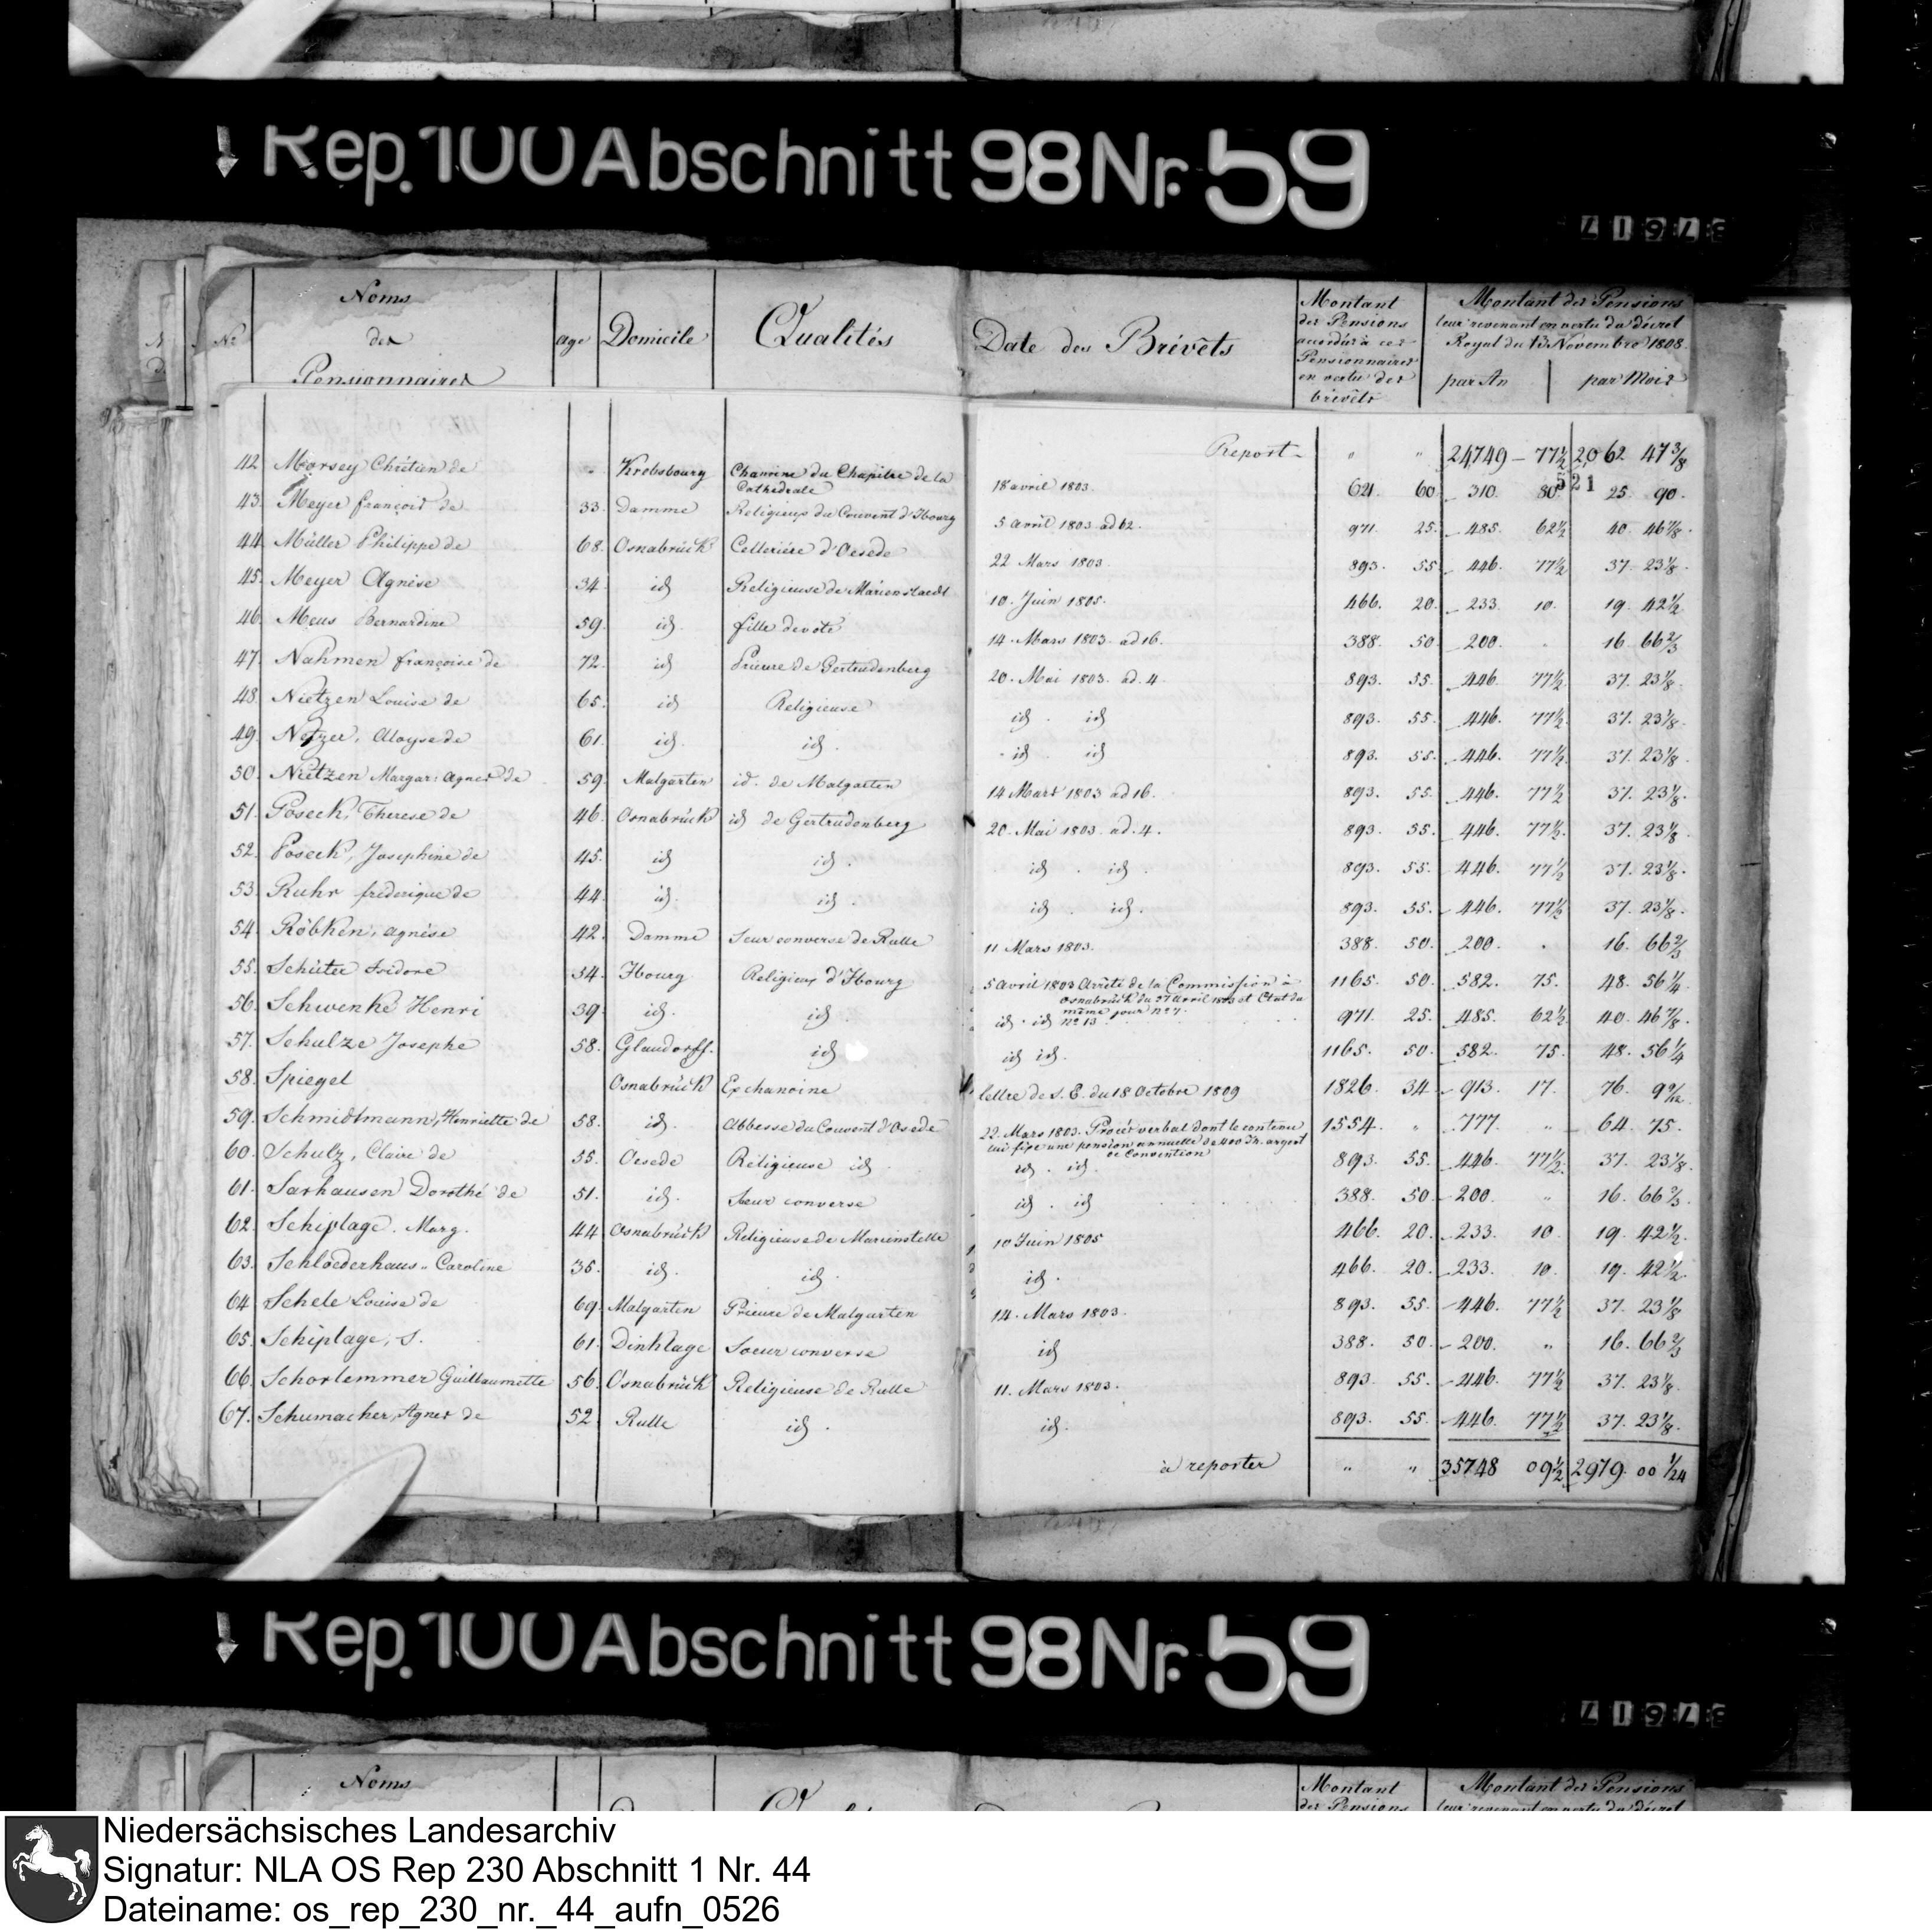 Rep. 100 Abschnitt 98 Nr. 59
Nº | Noms des Pensionnaires | age | Domicile | Qualités | Date des Brévèts | Montant des Pensions accordés à ces Pensionnaires en vertu des brévèts | Montant des Pensions leur revenant en vertu du décret Royal du 13 Novembre 1808. par An | par Mois
Report | " " | 24749 – 77½ | 2062 47⅜
521
42 Morsey Chrétien de | Krebsbourg | Chanoine du Chapitre de la Cathédrale | 18 avril 1803. | 621. 60. | 310. 80. | 25. 90.
43. Meyer françois de | 33. | Damme | Religieux du Couvent d'Ibourg | 5 avril 1803 ad 62. | 971. 25. | 485. 62½ | 40. 46⅞.
44. Müller Philippe de | 68. | Osnabrück | Cellerière d'Oesede | 22 Mars 1803. | 893. 55. | 446. 77½ | 37. 23⅛.
45. Meyer Agnèse | 34. | id | Religieuse de Marienstaedt | 10. Juin 1805. | 466. 20. | 233. 10. | 19. 42½
46. Meus Bernardine | 59. | id. | fille devote | 14. Mars 1803. ad 16. | 388. 50. | 200. | 16. 66⅔
47. Nahmen françoise de | 72. | id | Prieure de Gertrudenberg | 20. Mai 1803. ad. 4. | 893. 55. | 446. 77½. | 37. 23⅛.
48. Nietzen Louise de | 65. | id | Religieuse | id. id | 893. 55. | 446. 77½. | 37. 23⅛.
49. Netzer, Aloyse de | 61. | id. | id. | id id | 893. 55. | 446. 77½. | 37. 23⅛.
50. Nietzen Margar: Agnes de | 59. | Malgarten | id. de Malgarten | 14 Mars 1803 ad 16. | 893. 55. | 446. 77½ | 37. 23⅛.
51. Poseck, Therese de | 46. | Osnabrück | id de Gertrudenberg | 20. Mai 1803. ad. 4. | 893. 55. | 446. 77½. | 37. 23⅛.
52. Poseck, Josephine de | 45. | id | id. | id. id. | 893. 55. | 446. 77½ | 37. 23⅛.
53. Ruhr frederique de | 44. | id. | id. | id. id. | 893. 55. | 446. 77½ | 37. 23⅛.
54. Röbken, Agnése | 42. | Damme | Seur converse de Rulle | 11 Mars 1803. | 388. 50. | 200. | 16. 66⅔
55. Schüter Isidore | 54. | Ibourg | Religieux d'Ibourg | 5 avril 1803 Arrêté de la Commission à Osnabrück du 27 avril 1803 et Etat du même jour nº 7. | 1165. 50. | 582. 75. | 48. 56¼
56. Schwenke Henri | 39. | id. | id. | id. id nº 13. | 971. 25. | 485. 62½ | 40. 46⅞.
57. Schulze Josephe | 58. | Glandorff. | id | id id. | 1165. 50. | 582. 75. | 48. 56¼
58. Spiegel | Osnabrück | Exchanoine | lettre de S. E. du 18 Octobre 1809 | 1826. 34. | 913. 17. | 76.
59. Schmidtmann, Henriette de | 58. | id. | Abbesse du Couvent d'Osede | 22. Mars 1803. Procès verbal dont le contenu lui fixe une pension annuelle de 400 argent de Convention | 1554. " | 777. " | 64. 75.
60. Schulz, Claire de | 55. | Oesede | Réligieuse id | id. id. | 893. 55. | 446. 77½. | 37. 23⅛.
61. Sarhausen Dorothé de | 51. | id. | Sœur converse | id. id | 388. 50. | 200. " | 16. 66⅔.
62. Schiplage. Marg. | 44 | Osnabrück | Religieuse de Marienstelle | 10 Juin 1805 | 466. 20. | 233. 10 | 19. 42½.
63. Schloederhaus, Caroline | 35. | id. | id. | id. | 466. 20. | 233. 10. | 19. 42½
64 Schele Louise de | 69. | Malgarten | Prieure de Malgarten | 14. Mars 1803. | 893. 55. | 446. 77½ | 37. 23⅛
65. Schiplage, S. | 61. | Dinklage | Soeur converse | id | 388. 50. | 200. " | 16. 66⅔
66. Schorlemmer Guillaumette | 56. | Osnabrück | Religieuse de Rulle | 11. Mars 1803. | 893. 55. | 446. 77½ | 37. 23⅛.
67. Schumacher, Agnes de | 52. | Rulle | id. | id. | 893. 55. | 446. 77½ | 37. 23⅛.
à reporter | " " | 35748 09½ | 2979. 00 1/24
Rep. 100 Abschnitt 98 Nr. 59
Noms
Montant des Pensions
Montant des Pensions leur revenant en vertu du décret
Niedersächsisches Landesarchiv
Signatur: NLA OS Rep 230 Abschnitt 1 Nr. 44
Dateiname: os_rep_230_nr._44_aufn_0526